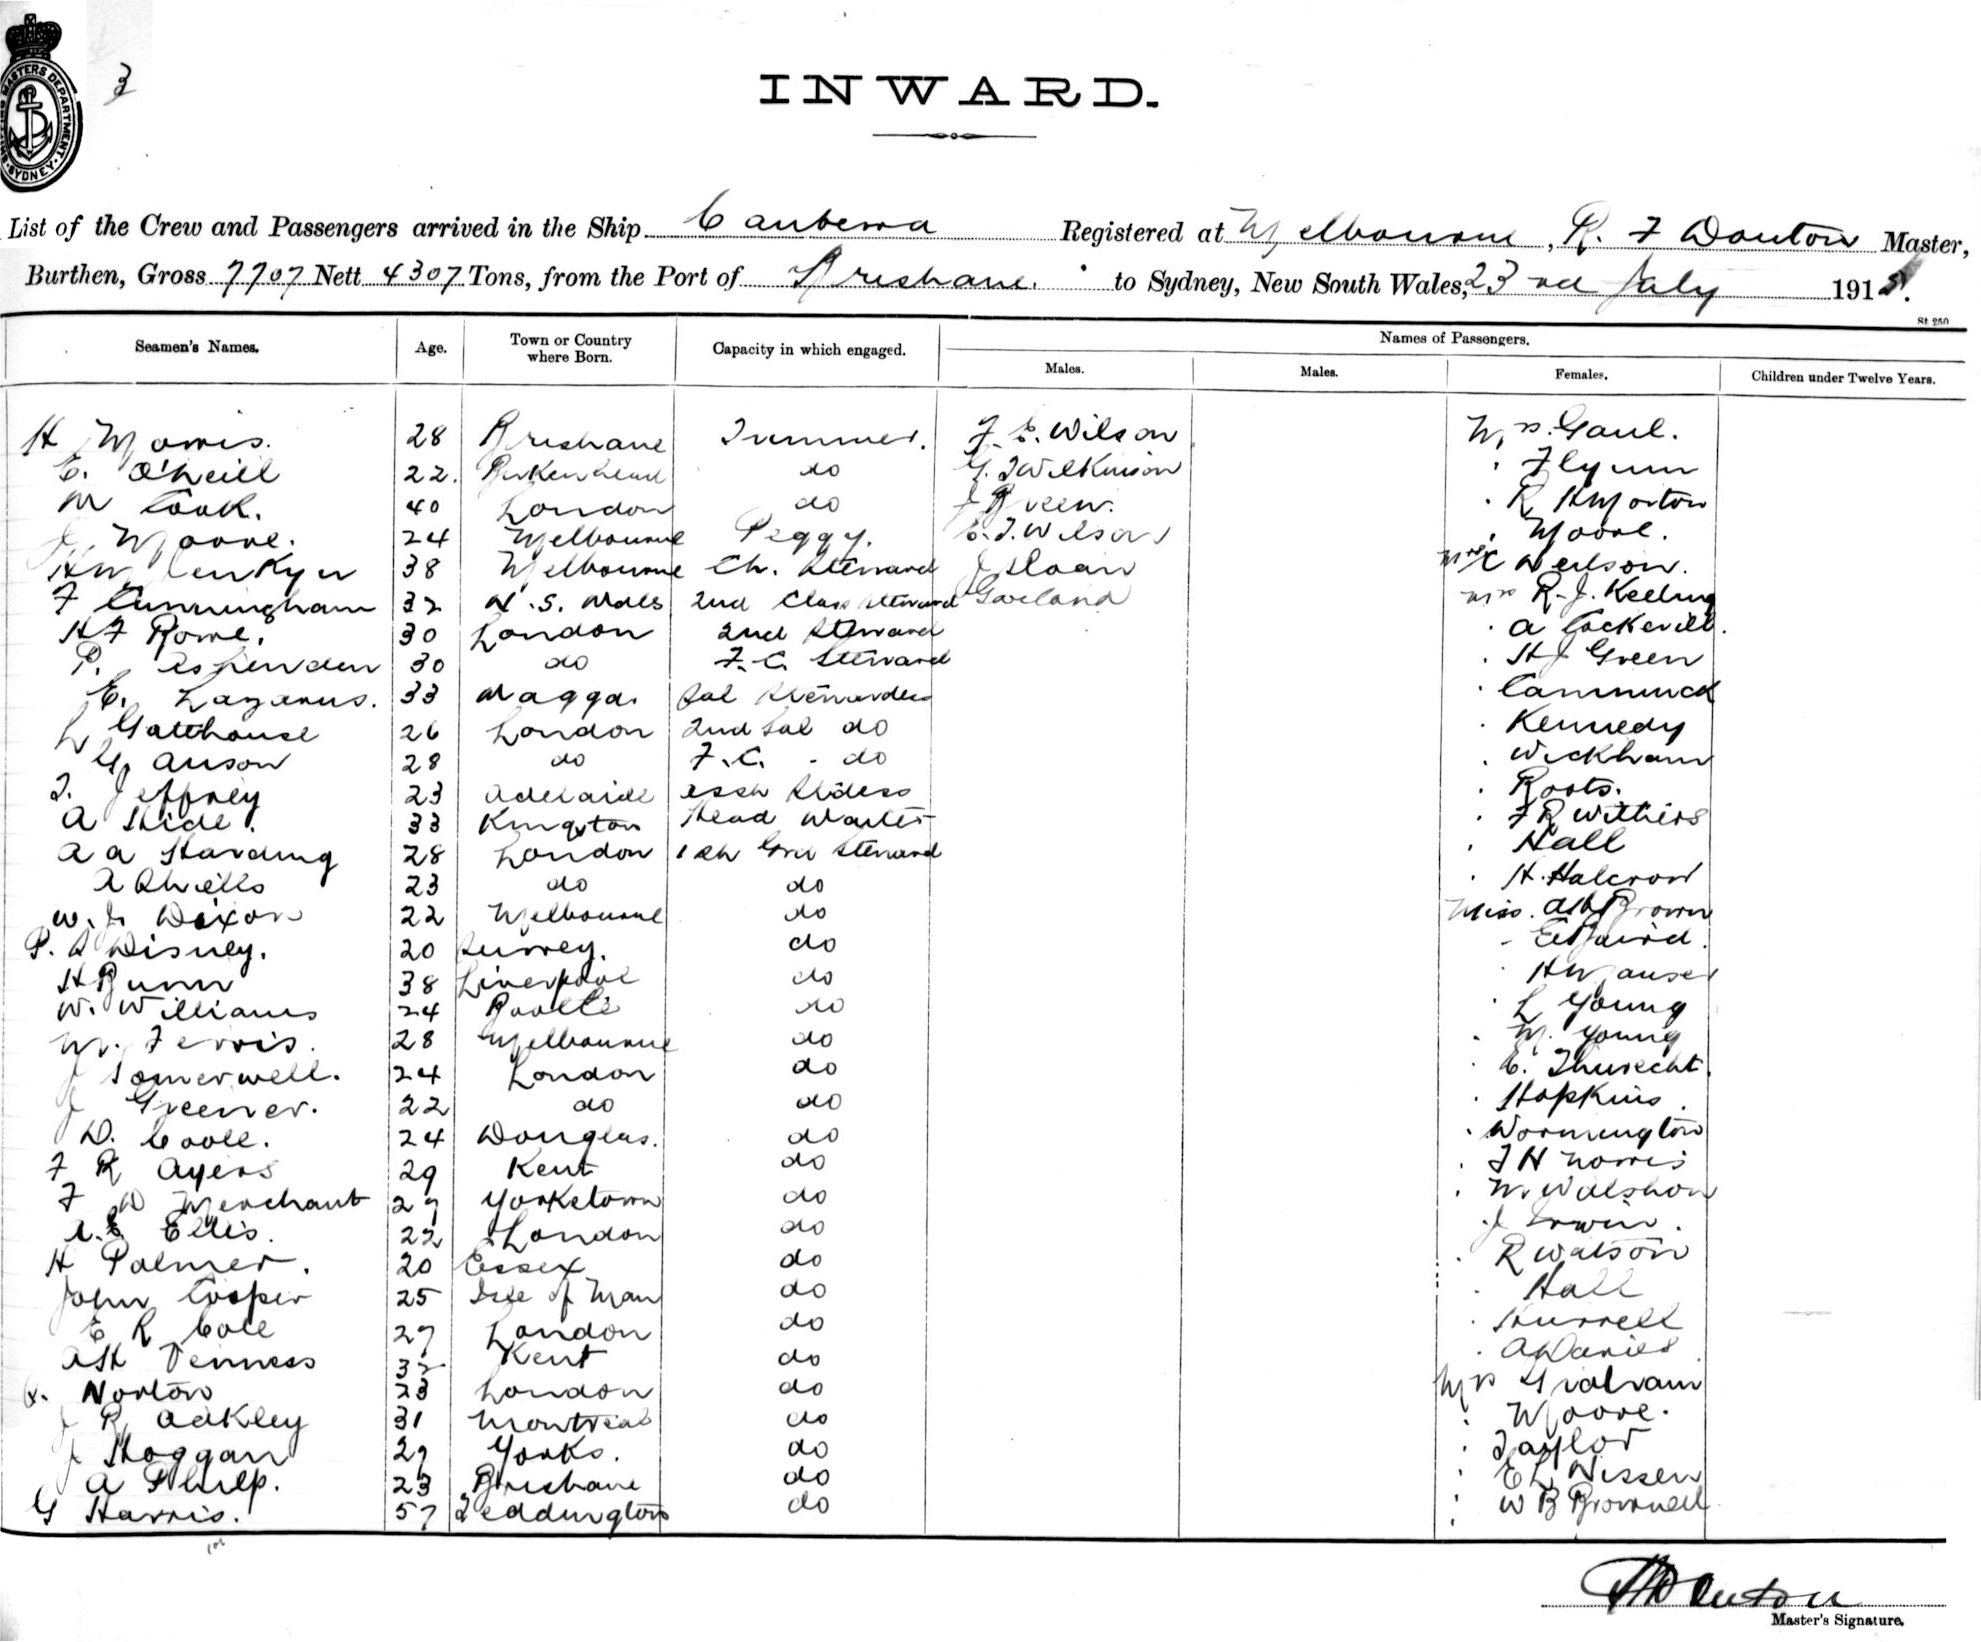 SHIPPING MASTERS DEPARTMENT. SYDNEY.
3
INWARD.
List of the Crew and Passengers arrived in the Ship Canberra Registered at Melbourne, R. F Douton Master,
Burthen, Gross 7707 Nett 4307 Tons, from the Port of Brisbane. to Sydney, New South Wales, 23rd July 1915.
St 250
Seamen's Names. Age. Town or Country where Born. Capacity in which engaged. Names of Passengers.
Males. Males. Females. Children under Twelve Years.
H Morris. 28 Brisbane Trimmer. F. E. Wilson Mrs. Gaul.
E. O'Neill 22. Birkenhead do G. T Wilkinson " Flynn
M Cook. 40 London do J Green. " R H Morton
J. Moore. 24 Melbourne Peggy. E. T. Wilson " Moore.
H W Jenkyn 38 Melbourne Ch. Steward J Sloan Neilson.
F Cunningham 32 N. S. Wales 2nd Class Steward Garland Mrs R. J. Keeling
H F Rowe. 30 London 2nd Steward " A Cockerill.
P. Aspenden 30 do F. C. Steward " H J Green
E. Lazarus. 33 Wagga. Sal Stewardess " Cammuck
L Gatehouse 26 London 2nd Sal do " Kennedy
G Anson 28 do F. C. do " Wickham
T. Jeffrey 23 Adelaide Stdess " Roots.
A Hide. 33 Kingston Head Waiter " F R Withers
A A Harding 28 London Steward " Hall
A Shiells 23 do do " H. Halcrow
W. J. Dixon 22 Melbourne do Miss. Brown
P. S Disney. 20 Surrey. do " E Baird.
H Bunn 38 Liverpool do " H Mauser
W. Williams 24 Bootle do " L Young
M. Ferris. 28 Melbourne do " M. Young
J Somerwell. 24 London do " E. Thurecht.
J Greener. 22 do do " Hopkins.
D. Coole. 24 Douglas. do " Wormington
F R Ayers 29 Kent do " T H Norris
F W Merchant 27 Yorketown do " W. Walshon
A. E Ellis. 22 London do J Irwin.
H Palmer. 20 Essex do " R Watson
John Cosper 25 Isle of Man do " Hall
E R Cole 27 London do " Hurrell
A H Venness 32 Kent do " A Davies
Norton 23 London do Mrs Gidham
J R Oakley 31 Montreal do " Moore.
J Hoggan 27 Yorks. do " Taylor
A Philp. 23 Brisbane do " E L Nissen
G Harris. 57 Teddington do " W B Brownell
R F Douton
Master's Signature.